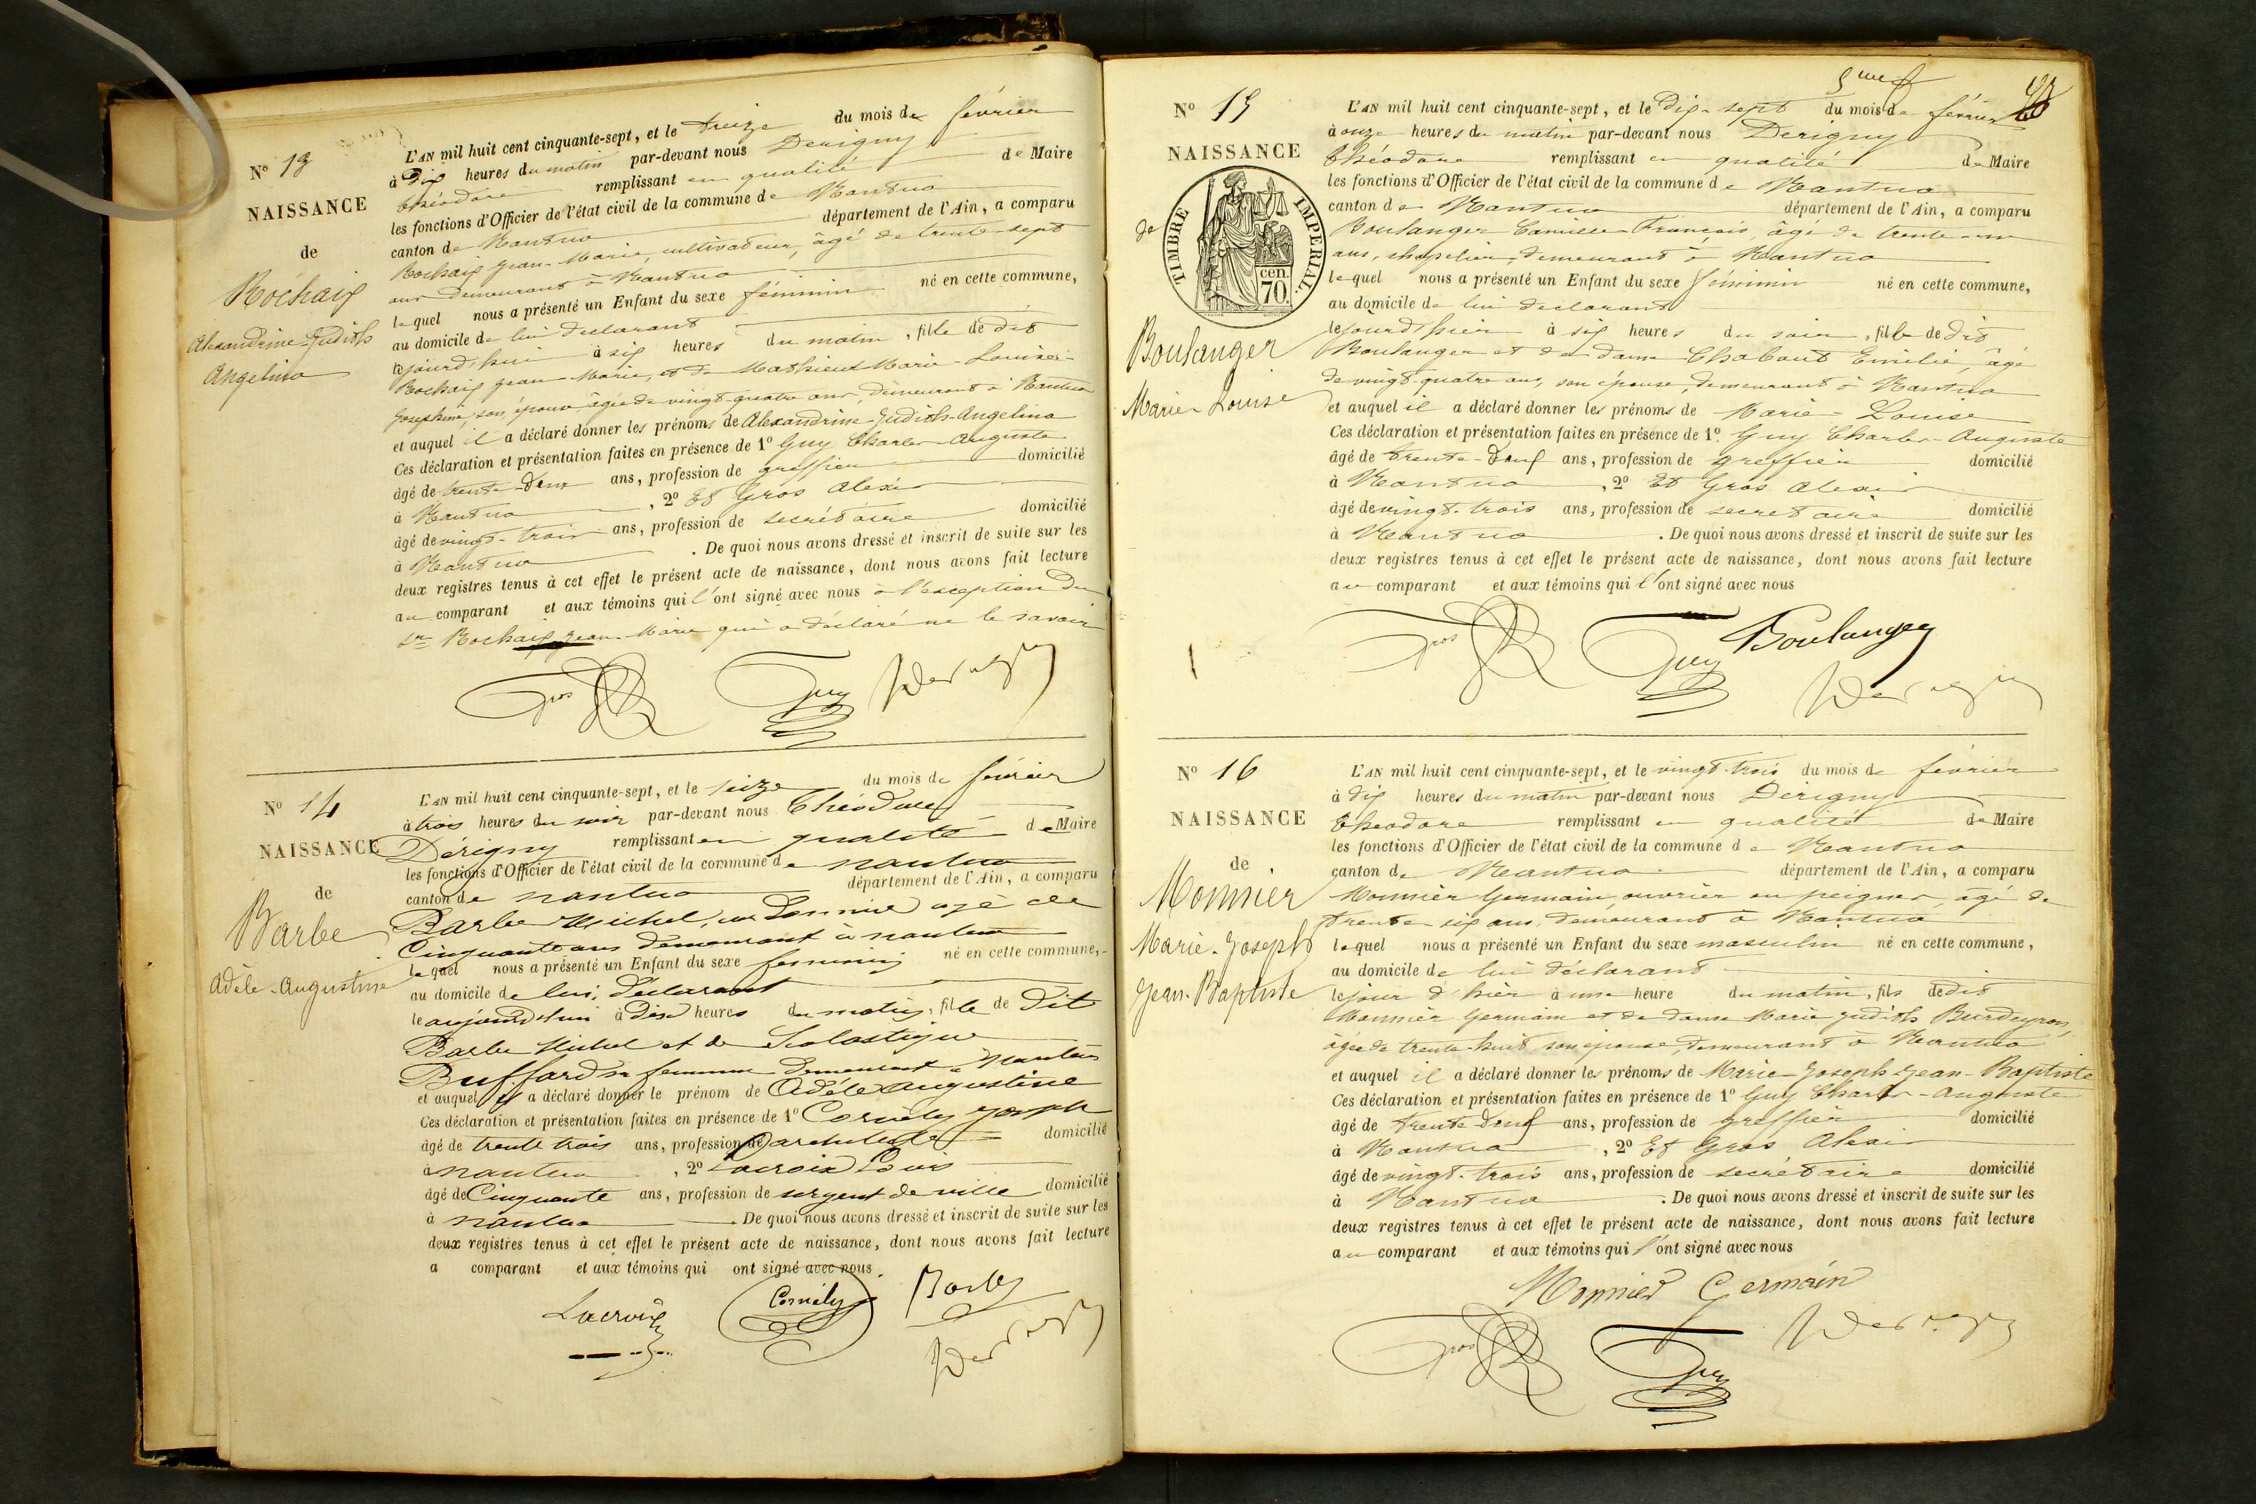 N° 13
NAISSANCE
de
Rochaix
Alexandrine-Judith
Angelina
L'AN mil huit cent cinquante-sept, et le treize du mois de février
à dix heures du matin par-devant nous Derigny
théodore remplissant en qualité de Maire
les fonctions d'Officier de l'état civil de la commune de Nantua
canton de Nantua département de l'Ain, a comparu
Rochaix Jean-Marie, cultivateur, âgé de trente-sept
ans demeurant à Nantua
lequel nous a présenté un Enfant du sexe féminin né en cette commune,
au domicile de lui déclarant
lejourd'hui à six heures du matin, fille de dit
Rochaix Jean Marie, et de Mathieu Marie-Louise-
Josephine son épouse âgée de vingt-quatre ans, demeurant à Nantua
et auquel il a déclaré donner les prénoms de Alexandrine Judith-Angelina
Ces déclaration et présentation faites en présence de 1° Guy Charles-Auguste
âgé de trente-deux ans, profession de greffier domicilié
à Nantua , 2° Et Gros Alexis
âgé de vingt-trois ans, profession de secrétaire domicilié
à Nantua . De quoi nous avons dressé et inscrit de suite sur les
deux registres tenus à cet effet le présent acte de naissance, dont nous avons fait lecture
au comparant et aux témoins qui l'ont signé avec nous à l'exception du
Sr Rochaix Jean-Marie qui a déclaré ne le savoir
Gros Guy Derigny
N° 14
NAISSANCE
de
Barbe
Adèle-Augustine
L'AN mil huit cent cinquante-sept, et le seize du mois de février
à trois heures du soir par-devant nous Théodore
Dérigny remplissant en qualité de Maire
les fonctions d'Officier de l'état civil de la commune de nantua
canton de nantua département de l'Ain, a comparu
Barbe Michel, agé de
Cinquante ans demeurant à nantua
lequel nous a présenté un Enfant du sexe feminin né en cette commune,
au domicile de lui, déclarant
le aujourd'hui à dix heures du matin, fille de dit
Barbe Michel et de Scolastique
Buffard sa femme demeurant à Nantua
et auquel il a déclaré donner le prénom de Adéle augustine
Ces déclaration et présentation faites en présence de 1° Cornély Joseph
âgé de trente trois ans, profession de architecte domicilié
à nantua , 2° Lacroix Louis
âgé de Cinquante ans, profession de sergent de ville domicilié
à nantua . De quoi nous avons dressé et inscrit de suite sur les
deux registres tenus à cet effet le présent acte de naissance, dont nous avons fait lecture
a comparant et aux témoins qui ont signé avec nous.
Lacroix Cornély Barbe
Derigny
N° 15
NAISSANCE
de
TIMBRE IMPERIAL.
cen.
70.
Boulanger
Marie-Louise
L'AN mil huit cent cinquante-sept, et le dix-sept du mois de février
à onze heures du matin par-devant nous Derigny
théodore remplissant en qualité de Maire
les fonctions d'Officier de l'état civil de la commune de Nantua
canton de Nantua département de l'Ain, a comparu
Boulanger Camille-François, âgé de trente-un
ans, chapelier, demeurant à Nantua
lequel nous a présenté un Enfant du sexe féminin né en cette commune,
au domicile de lui déclarant
lejourd'hier à six heures du soir, fille de dit
Boulanger et de dame Chabout Emilie, âgé
de vingt-quatre ans, son épouse, demeurant à Nantua
et auquel il a déclaré donner les prénoms de Marie-Louise
Ces déclaration et présentation faites en présence de 1° Guy Charles-Auguste
âgé de trente-deux ans, profession de greffier domicilié
à Nantua , 2° Et Gros Alexis
âgé de vingt-trois ans, profession de secretaire domicilié
à Nantua . De quoi nous avons dressé et inscrit de suite sur les
deux registres tenus à cet effet le présent acte de naissance, dont nous avons fait lecture
au comparant et aux témoins qui l'ont signé avec nous
Gros Guy Boulanger
Derigny
N° 16
NAISSANCE
de
Monnier
Marie-Joseph
Jean-Baptiste
L'AN mil huit cent cinquante-sept, et le vingt-trois du mois de février
à dix heures du matin par-devant nous Dérigny
théodore remplissant en qualité de Maire
les fonctions d'Officier de l'état civil de la commune de Nantua
canton de Nantua département de l'Ain, a comparu
Monnier Germain, ouvrier en peignes, âgé de
trente six ans, demeurant à Nantua
lequel nous a présenté un Enfant du sexe masculin né en cette commune,
au domicile de lui déclarant
lejour d'hier à une heure du matin, fils de dit
Monnier Germain et de dame Marie Judith Burdeyron,
âgée de trente-huit son épouse, demeurant à Nantua
et auquel il a déclaré donner les prénoms de Marie-Joseph-Jean-Baptiste
Ces déclaration et présentation faites en présence de 1° Guy Charles-Auguste
âgé de trente-deux ans, profession de greffier domicilié
à Nantua , 2° Et Gros Alexis
âgé de vingt-trois ans, profession de secrétaire domicilié
à Nantua . De quoi nous avons dressé et inscrit de suite sur les
deux registres tenus à cet effet le présent acte de naissance, dont nous avons fait lecture
au comparant et aux témoins qui l'ont signé avec nous
Monnier Germain
Gros Guy Derigny